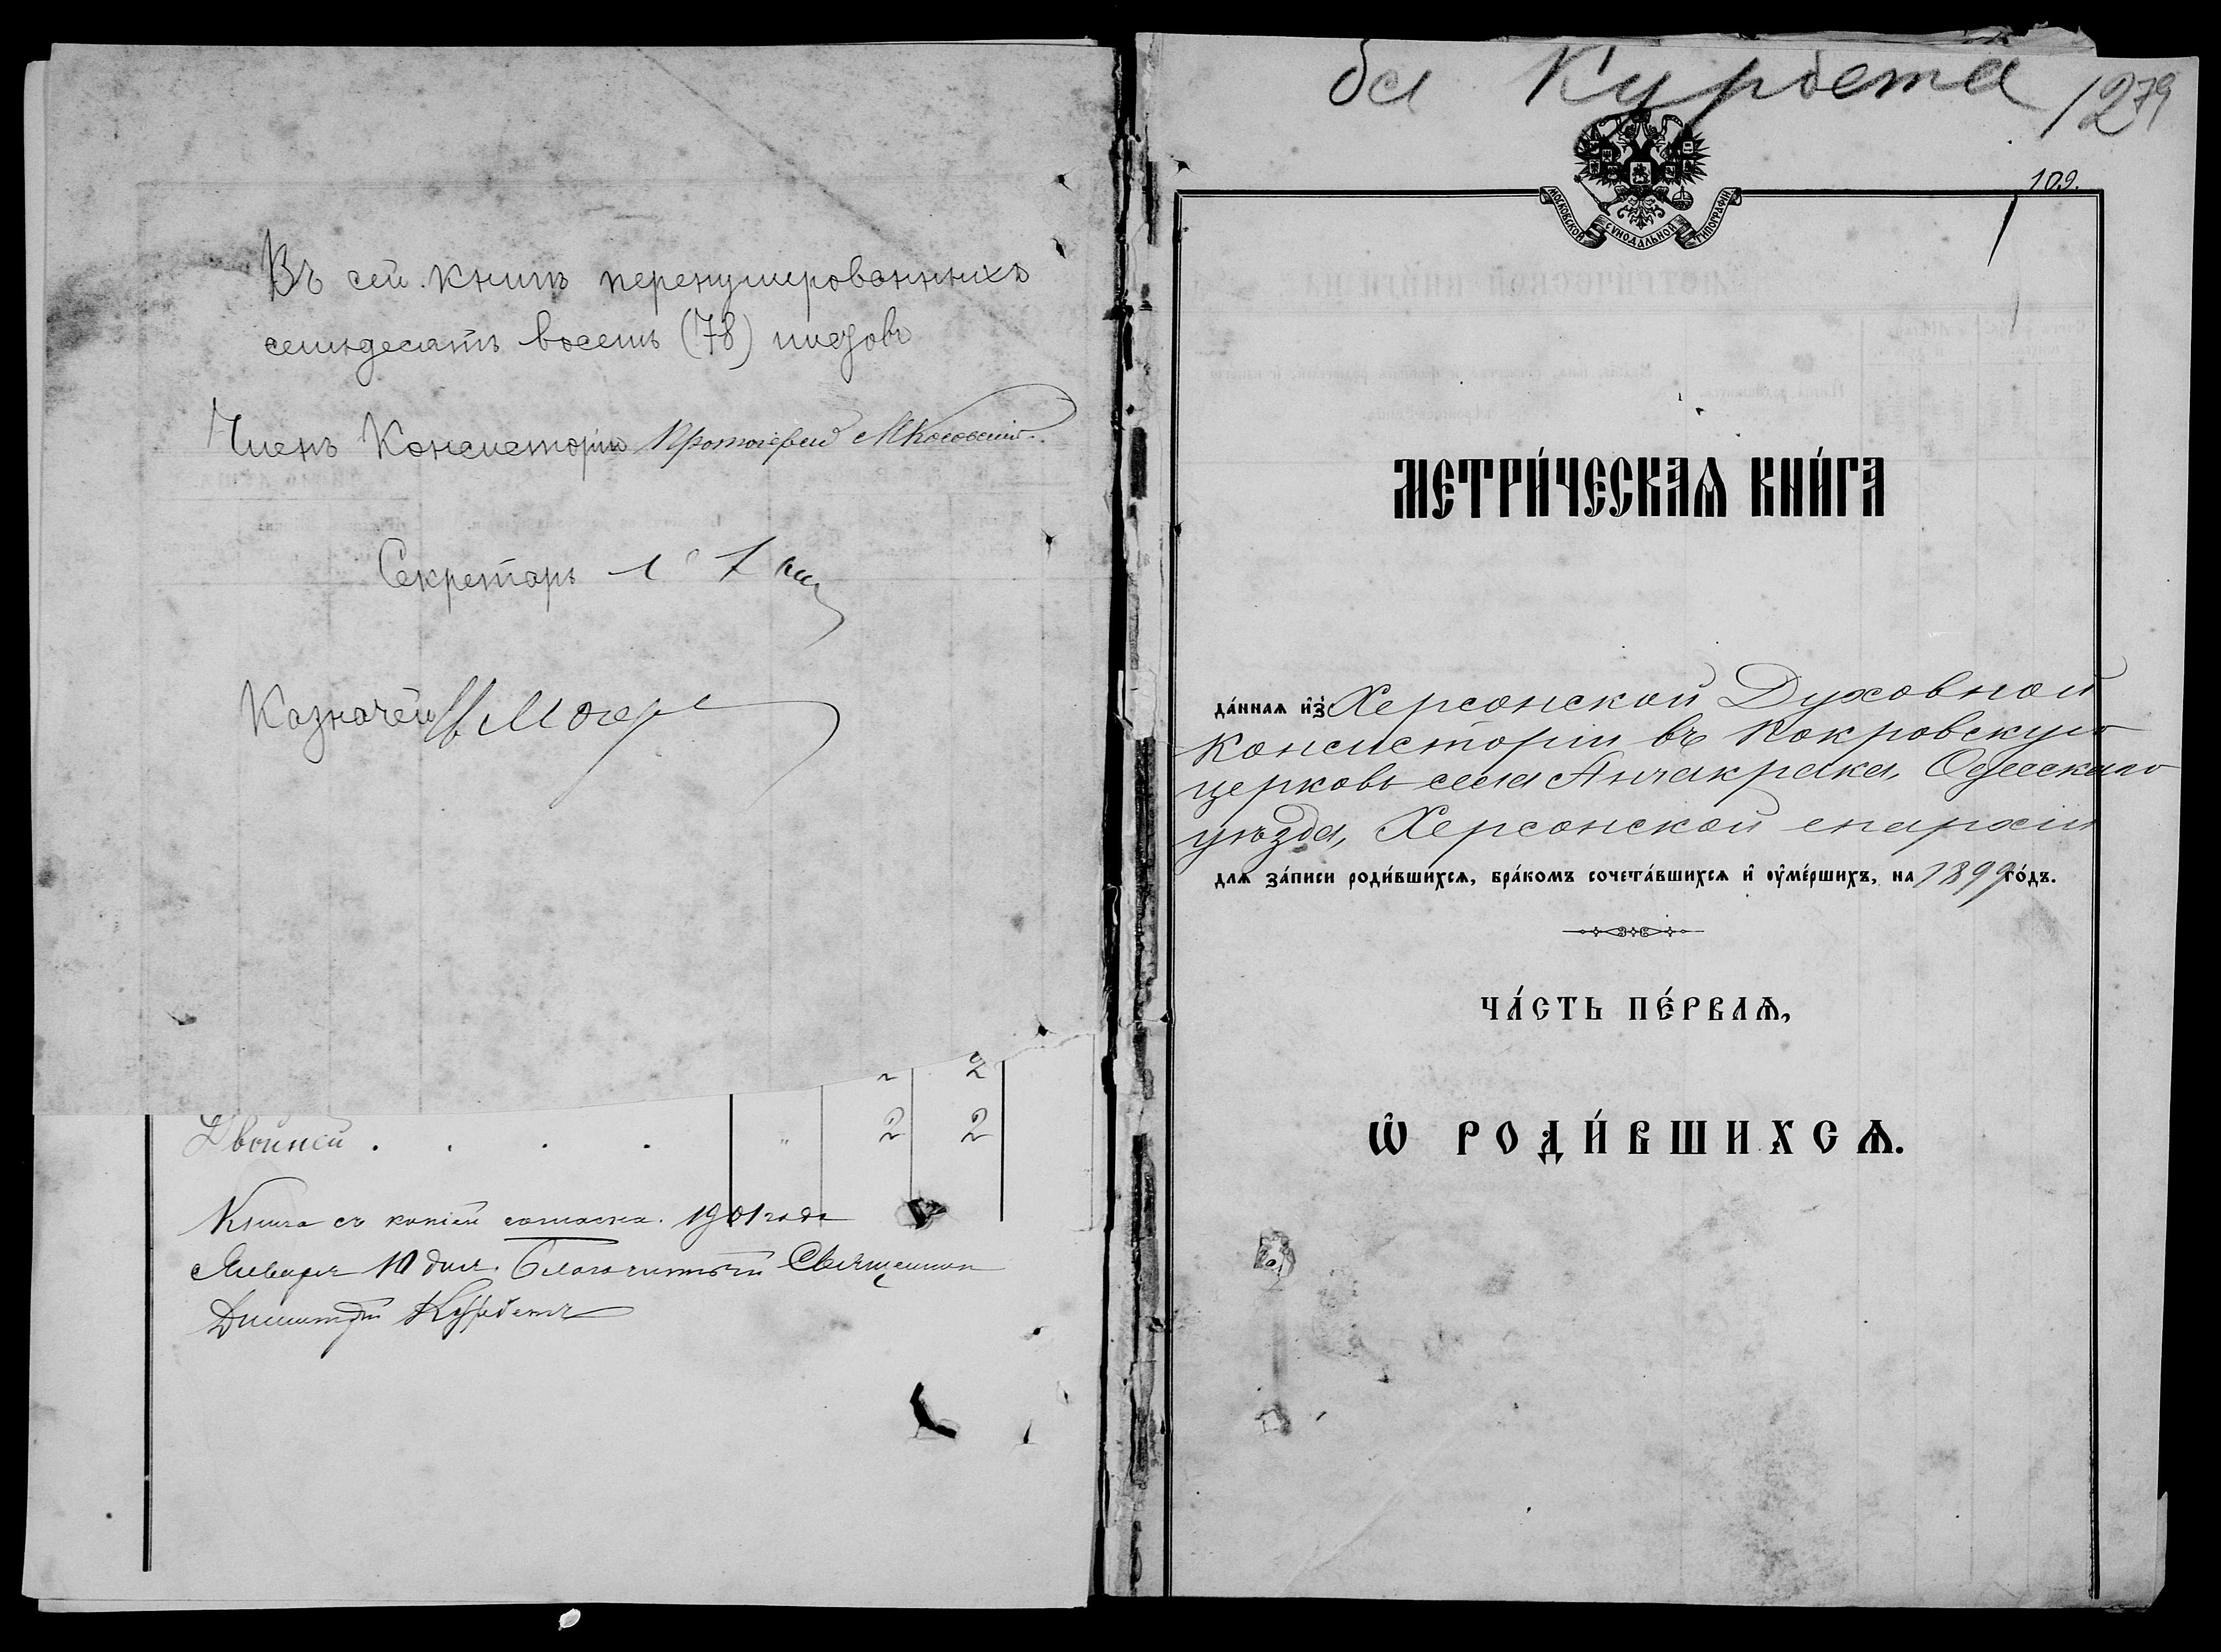 Въ сей книгѣ перенумерованныхъ
семьдесятъ восемь (78) листовъ
Членъ Консисторіи Протоіерей
Секретарь
Казначей
2
Двойней . . . . " 2 2
Книга съ копіей согласна. 1901 года
Января 10 дня. Благочинный Священник
Димитрій Курбетъ
бл Курбета
1279
109.
1
МОСКОВСКОЙ СѴНОДАЛЬНОЙ ТИПОГРАФІИ
МЕТРИ́ЧЕСКАѦ КНИ́ГА
да́ннаѧ и҆з̾ Херсонской Духовной
Консисторіи въ Покровскую
церковь села Анчакрака, Одесскаго
уѣзда, Херсонской епархіи
длѧ за́писи роди́вшихсѧ, бра́комъ сочета́вшихсѧ и҆ оу҆ме́ршихъ, на 1899 го́дъ.
ЧА́СТЬ ПЕ́РВАѦ,
Ѽ РОДИ́ВШИХСѦ.